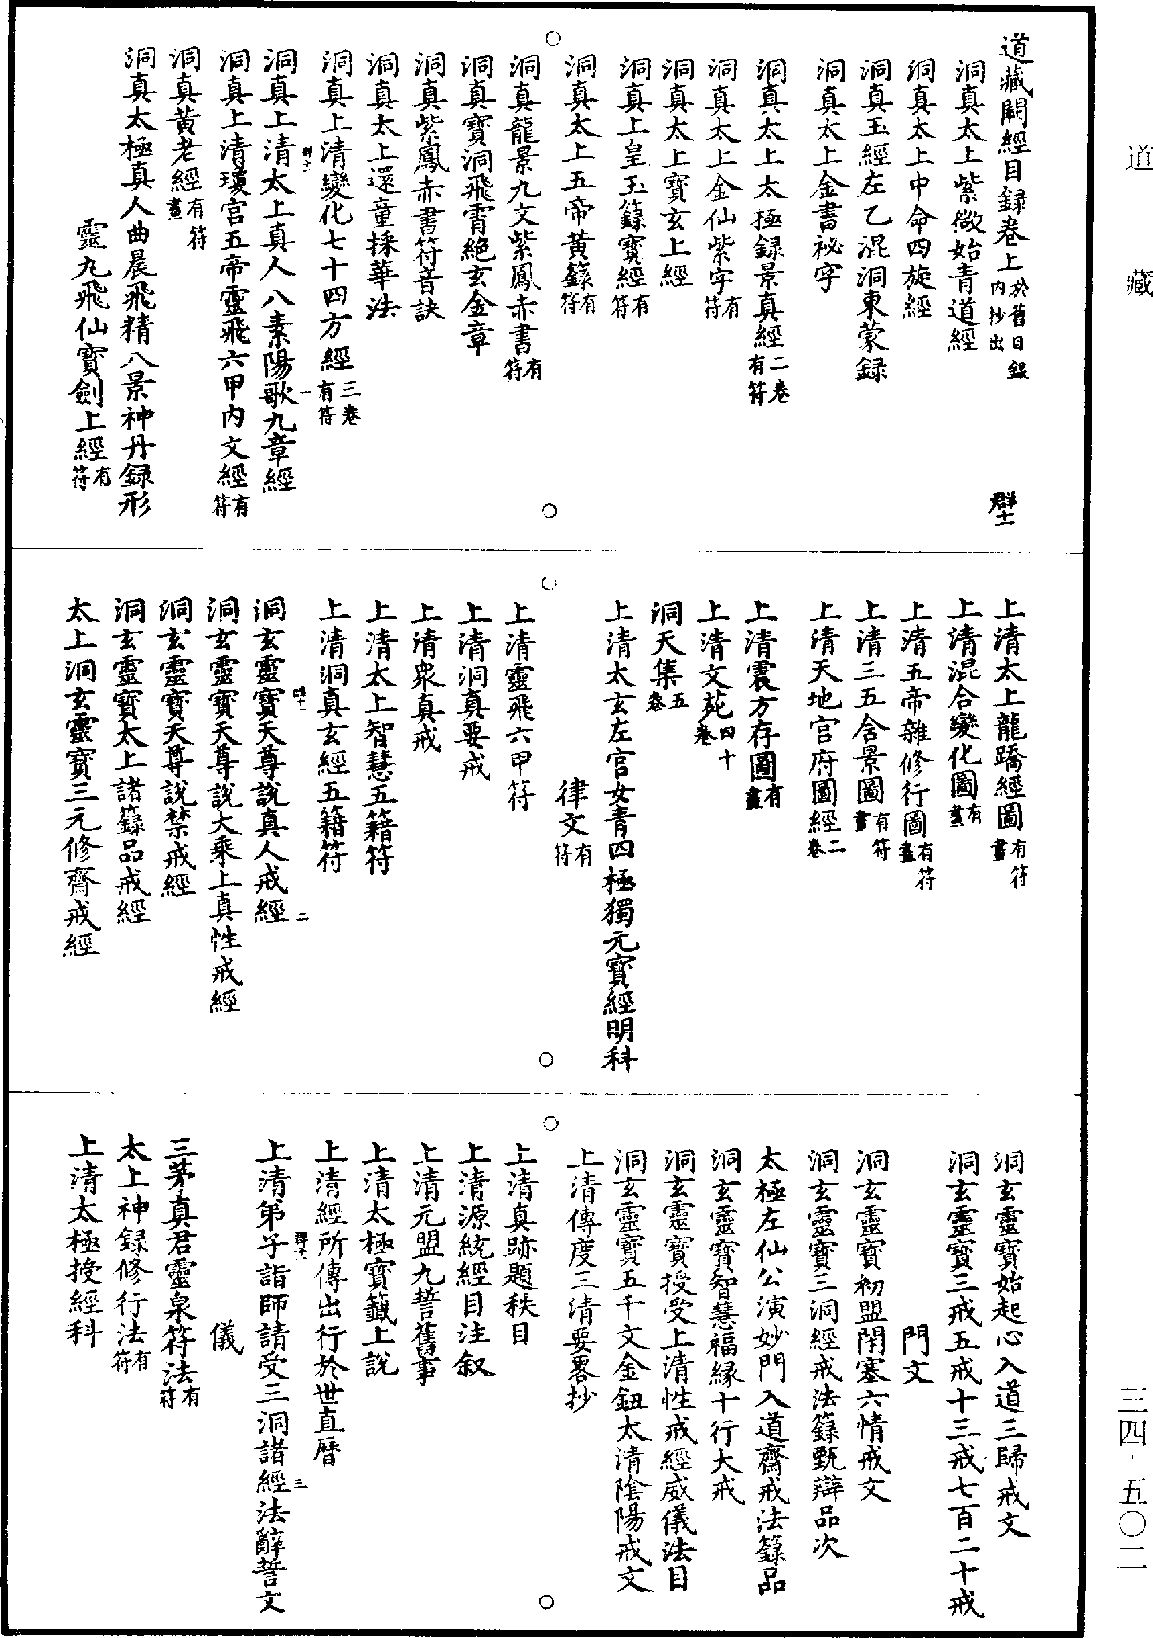 道藏
三四·五〇二
道藏闕經目録卷上 於舊目録内抄出 群十一
洞真太上紫微始青道經
洞真太上中命四旋經
洞真玉經左乙混洞東蒙録
洞真太上金書祕字
洞真太上太極録景真經二卷有符
洞真太上金仙紫字有符
洞真太上寶玄上經
洞真上皇玉籙寶經有符
洞真太上五帝黃籙有符
洞真龍景九文紫鳳赤書有符
洞真寶洞飛霄絕玄金章
洞真紫鳳赤書符音訣
洞真太上還童採華法
洞真上清變化七十四方經三卷有符
群十一 一
洞真上清太上真人八素陽歌九章經
洞真上清瓊宮五帝靈飛六甲内文經有符
洞真黃老經有符畫
洞真太極真人曲晨飛精八景神丹録形
靈九飛仙寶劍上經有符
上清太上龍蹻經圖有符畫
上清混合變化圖有畫
上清五帝雜修行圖有符畫
上清三五含景圖有符畫
上清天地宮府圖經二卷
上清震方存圖有畫
上清文苑四十卷
洞天集五卷
上清太玄左官女青四極獨元寶經明科
律文有符
上清靈飛六甲符
上清洞真要戒
上清衆真戒
上清太上智慧五籍符
上清洞真玄經五籍符
群十一 二
洞玄靈寶天尊說真人戒經
洞玄靈寶天尊說大乘上真性戒經
洞玄靈寶天尊說禁戒經
洞玄靈寶太上諸籙品戒經
太上洞玄靈寶三元修齋戒經
洞玄靈寶始起心入道三歸戒文
洞玄靈寶三戒五戒十三戒七百二十戒
門文
洞玄靈寶初盟閉塞六情戒文
洞玄靈寶三洞經戒法籙甄辯品次
太極左仙公演妙門入道齋戒法籙品
洞玄靈寶智慧福緣十行大戒
洞玄靈寶授受上清性戒經威儀法目
洞玄靈寶五千文金鈕太清陰陽戒文
上清傳度三清要畧抄
上清真跡題秩目
上清源統經目注叙
上清元盟九誓舊事
上清太極寶籤上說
上清經所傳出行於世直曆
三
上清弟子詣師請受三洞諸經法辭誓文
儀
三茅真君靈泉符法有符
太上神録修行法有符
上清太極授經科